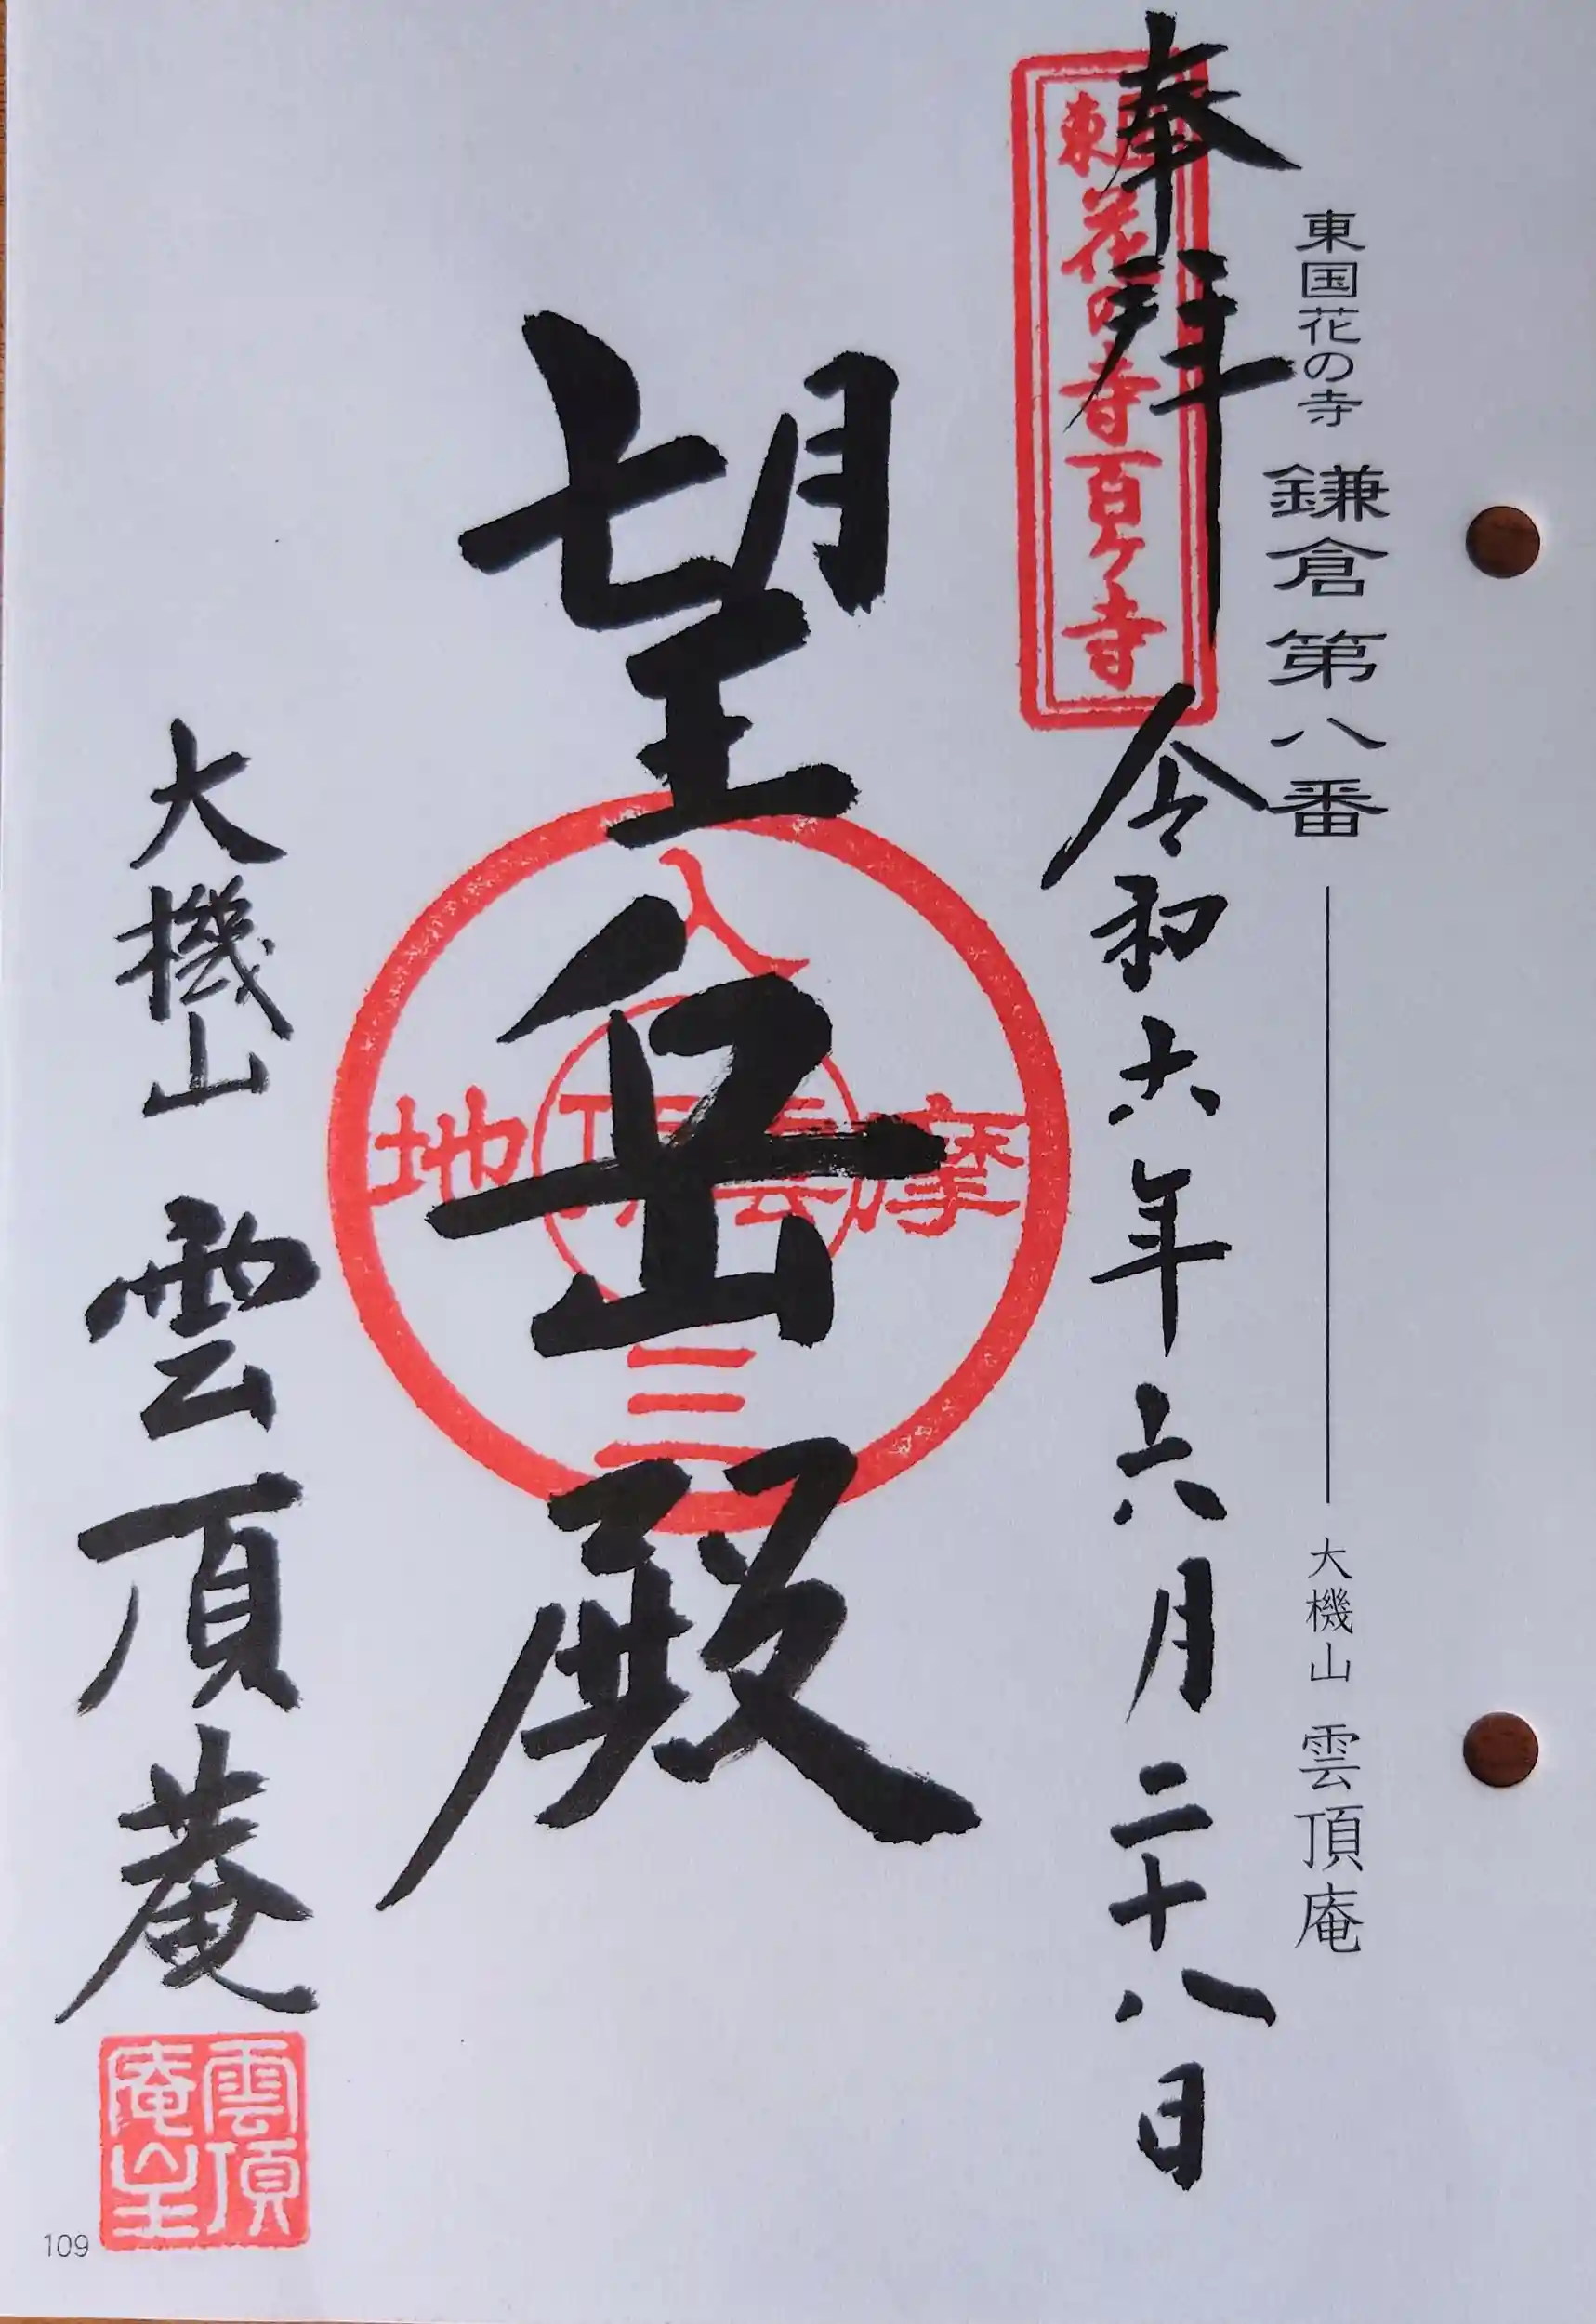 東国花の寺 鎌倉第八番 大機山 雲頂庵
奉拝
東国花の寺百ヶ寺
令和六年六月二十八日
望岳殿
入
摩 雲頂 地
三
大機山 雲頂菴
雲頂
庵
109